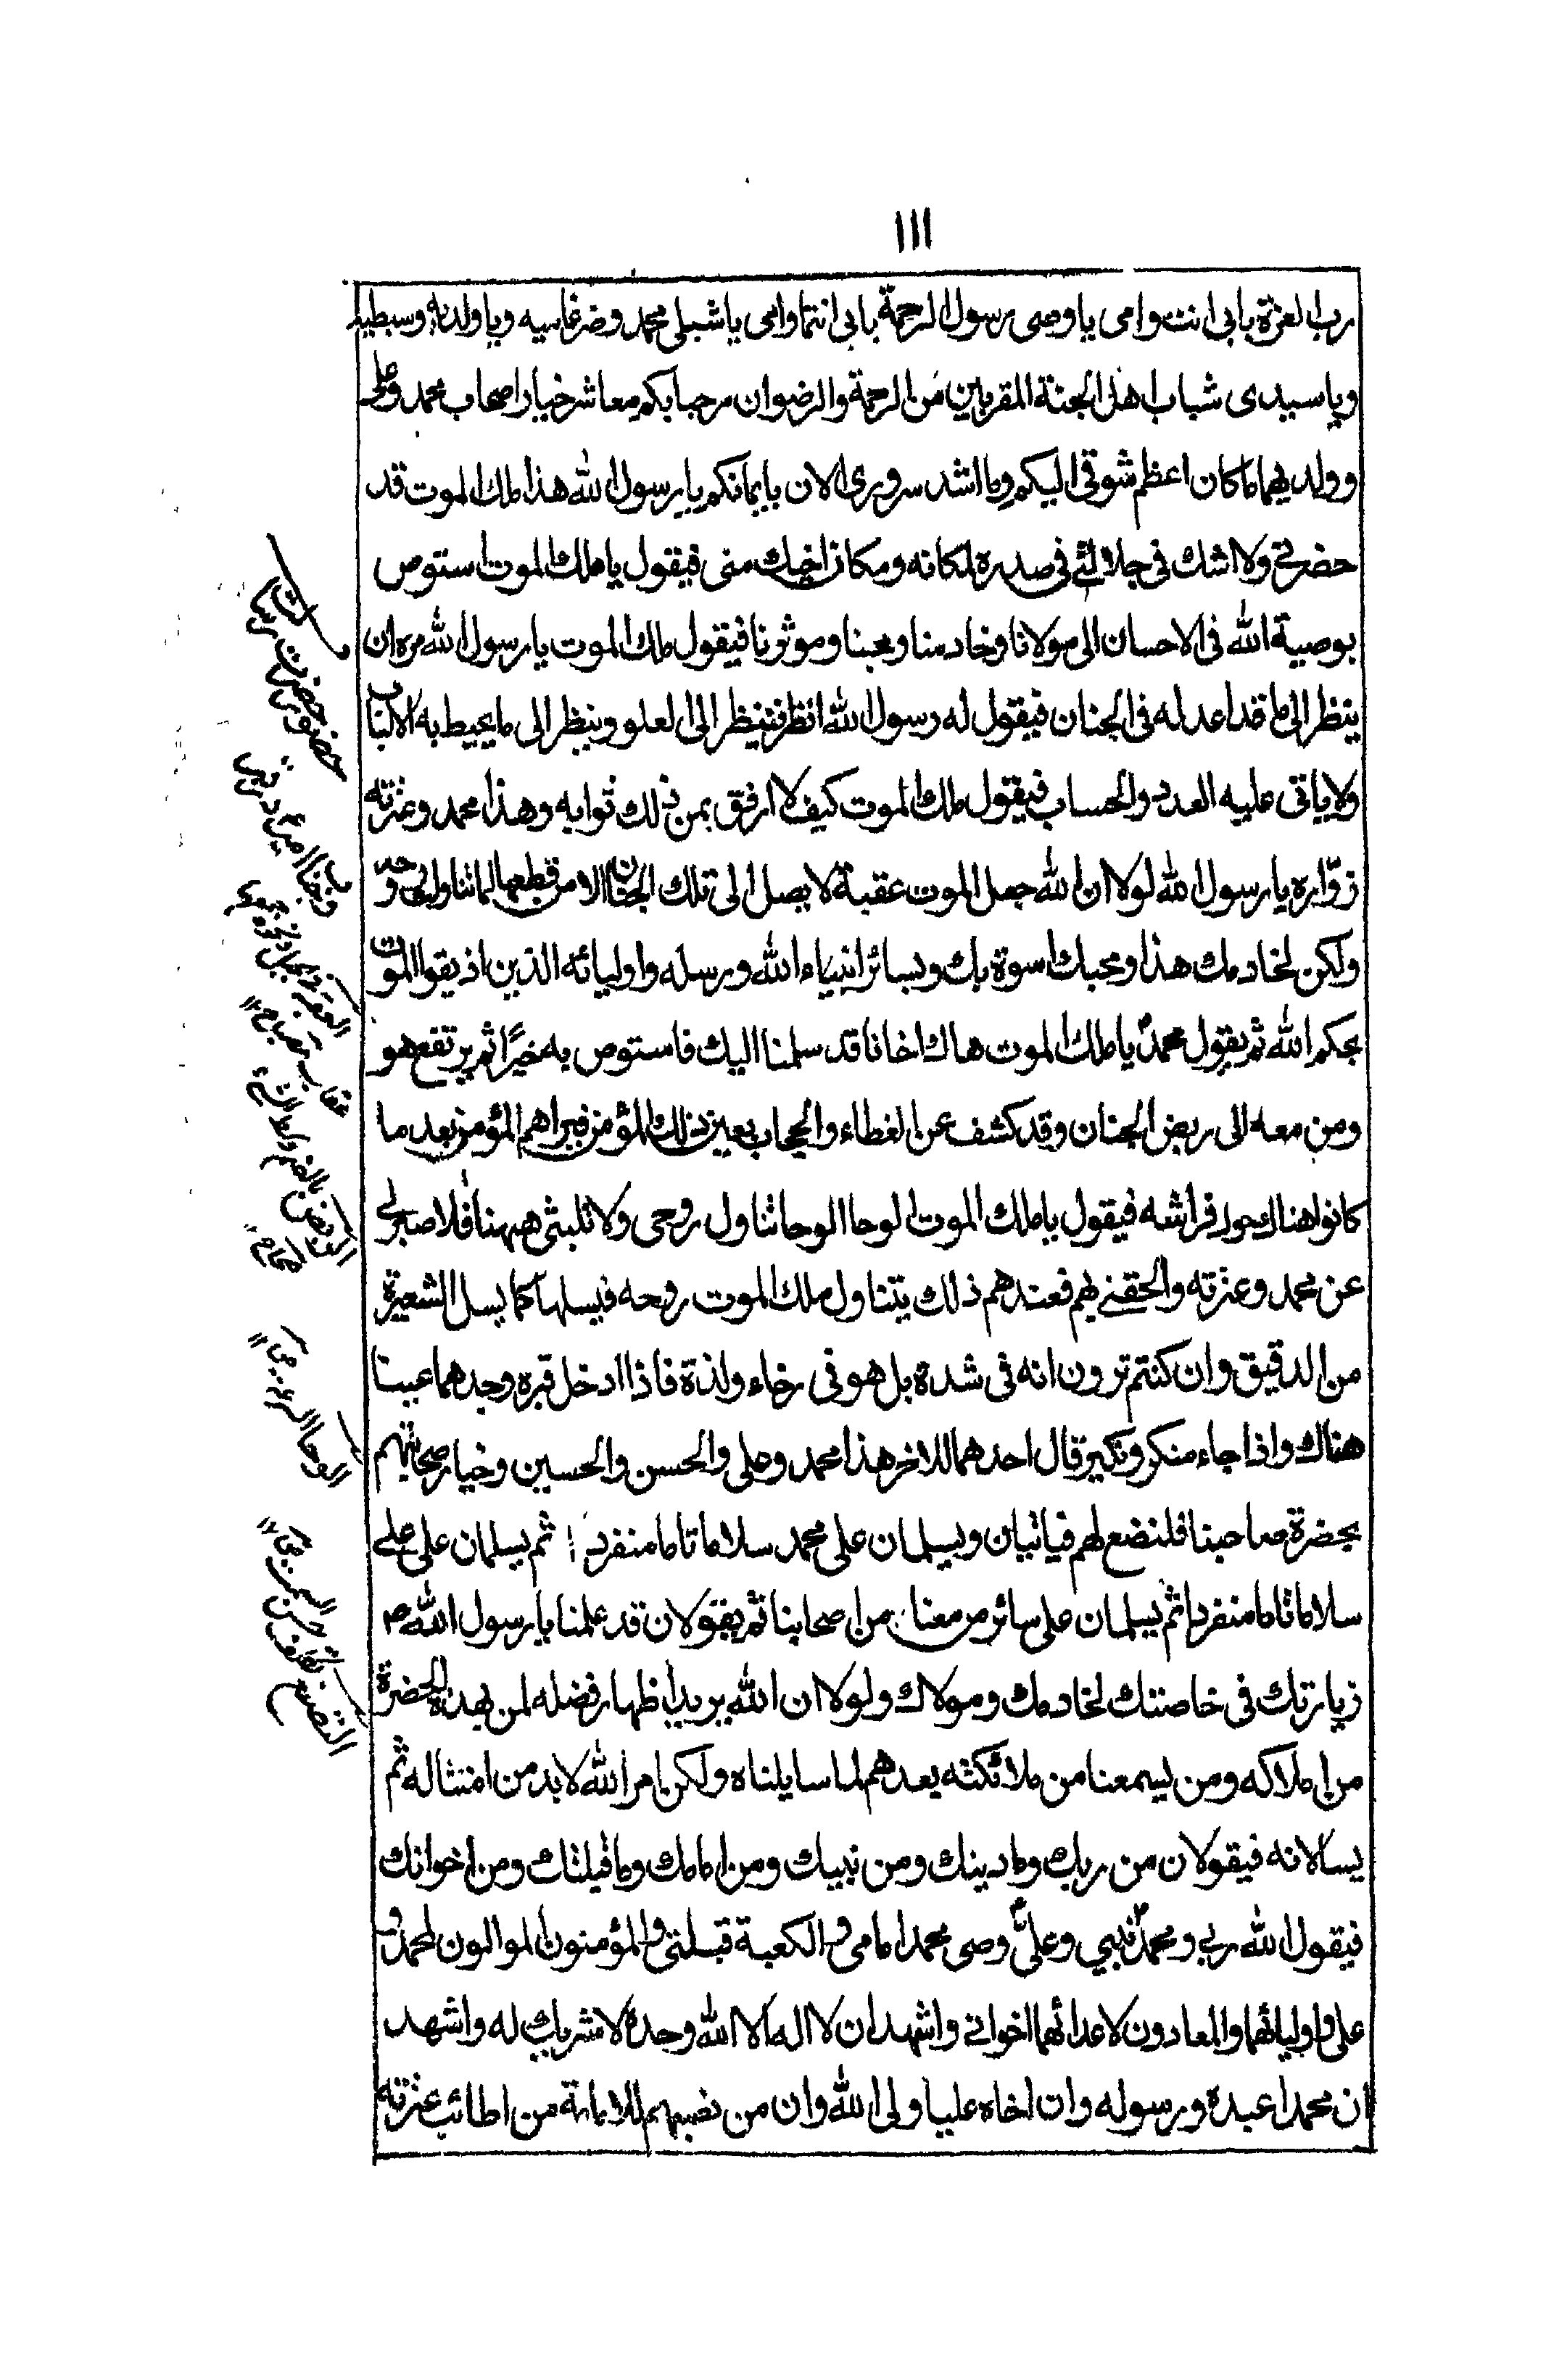 ١١١
رب العزة بابى انت وامى يا وصى رسول الرحمة بابى انتما وامى يا شبلى محمد وضرغاميه ويا ولديه وسبطيه
ويا سيدى شباب اهل الجنة المقربين من الرحمة والرضوان مرحبا بكم معاشر خيار اصحاب محمد وعلى
وولديهما ما كان اعظم شوقى اليكم وما اشد سرورى الان بايمانكم يا رسول الله هذا ملك الموت قد
حضرنى ولا اشك فى جلالتى فى صدره لمكانه ومكان اخيك منى فيقول يا ملك الموت استوص
بوصية الله فى الاحسان الى مولانا وخادمنا ومحبنا وموثرنا فيقول ملك الموت يا رسول الله مره ان
ينظر الى ما قد اعد له فى الجنان فيقول له رسول الله انظر فينظر الى العلو وينظر الى ما يحيط به الالباب
ولا ياتى عليه العدد والحساب فيقول ملك الموت كيف لا ارفق بمن ذلك ثوابه وهذا محمد وعترته
زوّاره يا رسول الله لولا ان الله جعل الموت عقبة لا يصل الى تلك الجنان الا من قطعها لما تناولت روحه
ولكن لخادمك هذا ومحبك اسوة بك وبسائر انبياء الله ورسله واوليائه الذين اذيقوا الموت
بحكم الله ثم يقول محمدٌ يا ملك الموت هاك اخانا قد سلمنا اليك فاستوص به خيرًا ثم يرتفع هو
ومن معه الى ربض الجنان وقد كشف عن الغطاء والحجاب بعين ذلك المؤمن فيراهم المؤمن بعد ما
كانوا هناك حول فراشه فيقول يا ملك الموت الوحا الوحا تناول روحى ولا تلبثى ههنا فلا صبر لى
عن محمد وعترته والحقنى بهم فعندهم ذلك يتناول ملك الموت روحه فيسلها كما يسل الشعيرة
من الدقيق وان كنتم ترون انه فى شدة بل هو فى رخاء ولذة فاذا ادخل قبره وجدهما عبينا
هناك واذا جاء منكر ونكير قال احدهما للاخر هذا محمد وعلى والحسن والحسين وخيار صحابتهم
بحضرة صاحبنا فلنضع لهم فياتيان ويسلمان على محمد سلاما تاما منفردا ثم يسلمان على على
سلاما تاما منفردا ثم يسلمان على سائر من معنا من اصحابنا ثم يقولان قد علمنا يا رسول الله ص
زيارتك فى خاصتك لخادمك ومولاك ولولا ان الله يريد اظهار فضله لمن بهذه الحضرة
من املاكه ومن يسمعنا من ملائكته بعدهم لما سايلناه ولكن امر الله لا بد من امتثاله ثم
يسالانه فيقولان من ربك وما دينك ومن نبيك ومن امامك وما قبلتك ومن اخوانك
فيقول الله ربى ومحمدٌ نبيى وعلىٌّ وصى محمد امامى والكعبة قبلتى والمؤمنون الموالون لمحمد و
على واوليائهما والمعادون لاعدائهما اخوانى واشهد ان لا اله الا الله وحده لا شريك له واشهد
ان محمدا عبده ورسوله وان اخاه عليا ولى الله وان من نصبهم للامامة من اطائب عترته
حضور حضرت رسالت